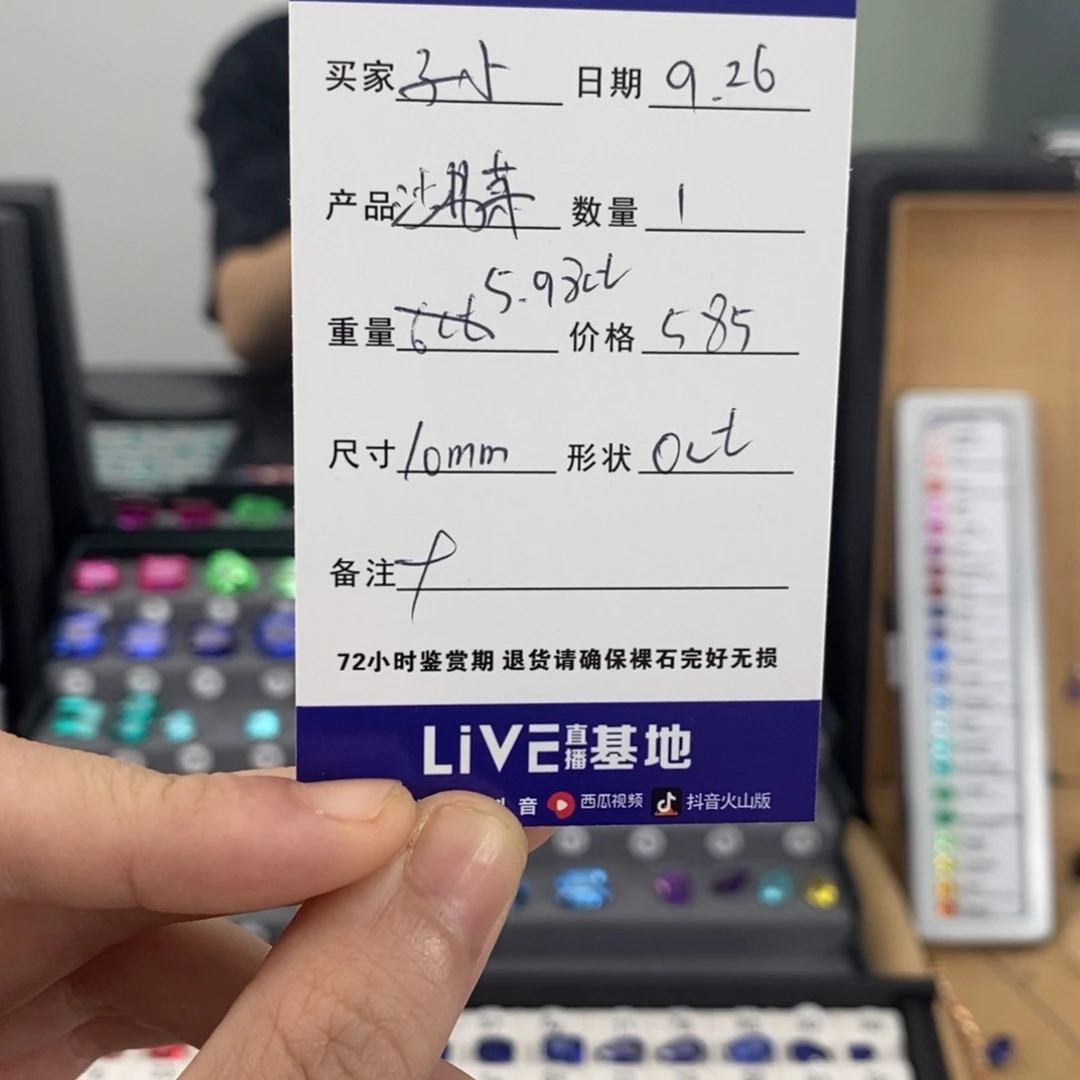 买家 子小 日期 9.26
产品 沙弗莱 数量 1
5.93ct
重量 6ct 价格 585
尺寸 10mm 形状 Oct
备注
72小时鉴赏期 退货请确保裸石完好无损
LiVE直播基地
音 西瓜视频 抖音火山版